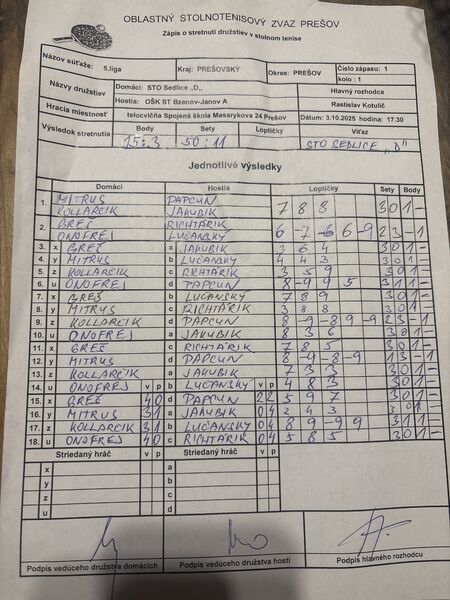 OBLASTNÝ STOLNOTENISOVÝ ZVÄZ PREŠOV
Zápis o stretnutí družstiev v stolnom tenise
Názov súťaže: 5.liga Kraj: PREŠOVSKÝ Okres: PREŠOV Číslo zápasu: 1
kolo : 1
Názvy družstiev Domáci: STO Sedlice „D„ Hlavný rozhodca
Hostia: OŠK ST Bzenov-Janov A Rastislav Kotulič
Hracia miestnosť telocvičňa Spojená škola Masarykova 24 Prešov Dátum: 3.10.2025 hodina: 17.30
Výsledok stretnutia Body Sety Loptičky Víťaz
15:3 50:11 STO SEDLICE „D"
Jednotlivé výsledky
Domáci Hostia Loptičky Sety Body
1. MITRUS PAPCUN 7 8 8 3 0 1 -
KOLLARCIK JAKUBIK
2. GREŠ RICHTÁRIK 6 -7 -6 6 -9 2 3 - 1
ONOFREJ LUČANSKY
3. x GREŠ a JAKUBIK 3 6 4 3 0 1 -
4. y MITRUS b LUČANSKY 4 4 3 3 0 1 -
5. z KOLLARCIK c RICHTÁRIK 3 5 9 3 0 1 -
6. u ONOFREJ d PAPCUN 8 -9 9 5 3 1 1 -
7. x GREŠ b LUČANSKY 7 8 9 3 0 1 -
8. y MITRUS c RICHTÁRIK 3 8 8 3 0 1 -
9. z KOLLARCIK d PAPCUN 8 -9 -8 9 -9 2 3 - 1
10. u ONOFREJ a JAKUBIK 8 3 6 3 0 1 -
11. x GREŠ c RICHTÁRIK 7 8 5 3 0 1 -
12. y MITRUS d PAPCUN 8 -9 -8 -9 1 3 - 1
13. z KOLLARCIK a JAKUBIK 7 3 3 3 0 1 -
14. u ONOFREJ v p b LUČANSKY v p 4 8 3 3 0 1 -
15. x GREŠ 4 0 d PAPCUN 2 2 5 9 7 3 0 1 -
16. y MITRUS 3 1 a JAKUBIK 0 4 2 4 3 3 0 1 -
17. z KOLLARCIK 3 1 b LUČANSKY 0 4 8 9 -9 9 3 1 1 -
18. u ONOFREJ 4 0 c RICHTÁRIK 0 4 5 8 5 3 0 1 -
Striedaný hráč v p Striedaný hráč v p
x a
y b
z c
u d
Podpis vedúceho družstva domácich Podpis vedúceho družstva hostí Podpis hlavného rozhodcu